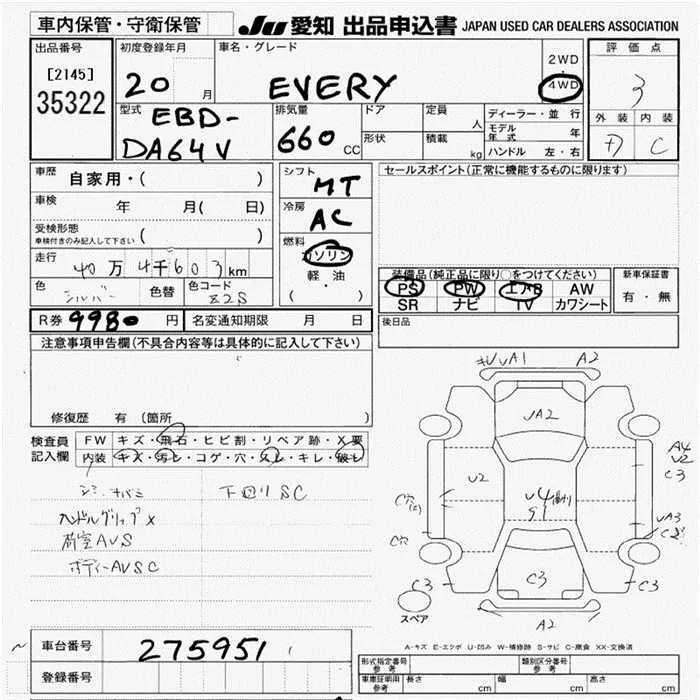 車内保管・守衛保管
JU 愛知 出品申込書 JAPAN USED CAR DEALERS ASSOCIATION
出品番号
[2145]
35322
初度登録年月
20 月
車名・グレード
EVERY
2WD
・
4WD
評価点
3
外装 内装
C
型式
EBD-
DA64V
排気量
660 CC
ドア
形状
定員 人
積載 kg
ディーラー・並行
モデル年式 年
ハンドル 左・右
車歴 自家用・( )
車検 年 月( 日)
受検形態
車検付きのみ記入して下さい ( )
走行 40万4千603km
色 シルバー 色替 色コード Z2S
シフト MT
冷房 AC
燃料
ガソリン
軽・油
( )
セールスポイント(正常に機能するものに限ります)
装備品(純正品に限り○をつけてください)
PS PW エアB AW
SR ナビ TV カワシート
新車保証書
有・無
R券 9980 円 名変通知期限 月 日
後日品
注意事項申告欄(不具合内容等は具体的に記入して下さい)
修復歴 有 (箇所
検査員
記入欄
FW キズ・飛石・ヒビ割・リペア跡・X要
内装 キズ・汚レ・コゲ・穴・スレ・キレ・破レ
下回りSC
ハンドルグリップX
荷室AUS
ボディーAUSC
A1 A2
A2
A4
U2
C3
U2
U4
S1
C穴
UA3
C2
C穴
C3
C3
C3
A2
スペア
A-キズ E-エクボ U-凹み W-補修跡 S-サビ C-腐食 XX-交換済
車台番号 275951
登録番号
形式指定番号
参考
類別区分番号
参考
車庫証明用
参考
長さ cm 幅 cm 高さ cm